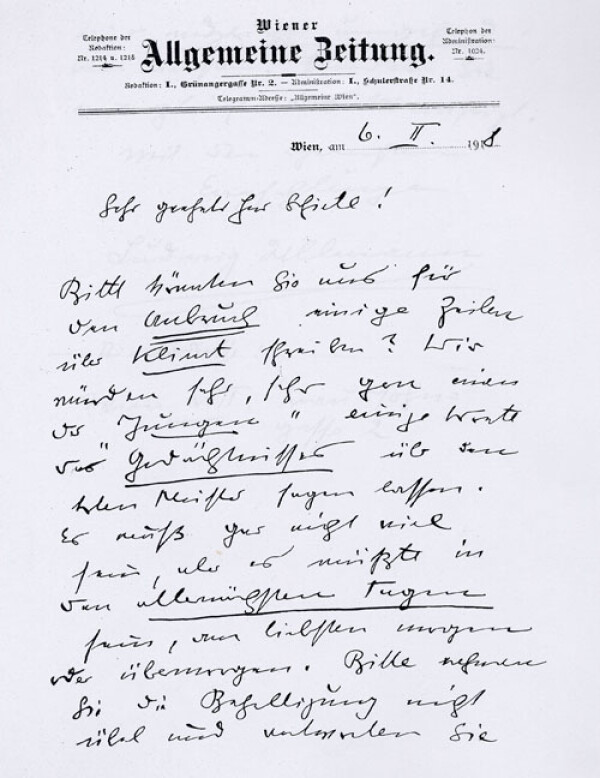 Wiener
Allgemeine Zeitung.
Telephone der
Redaktion:
Nr. 1214 u. 1215
Telephon der
Administration:
Nr. 1024.
Redaktion: I., Grünangergasse Nr. 2. — Administration: I., Schulerstraße Nr. 14.
Telegramm-Adresse: „Allgemeine Wien“.
Wien, am 6. II. 1918
Sehr geehrter Herr Schiele!
Bitte könnten Sie uns für
den Anbruch einige Zeilen
über Klimt schreiben? Wir
würden sehr, sehr gern einen
der „Jungen“ einige Worte
des Gedächtnisses über den
toten Meister sagen lassen.
Es muß gar nicht viel
sein, aber es müßte in
den allernächsten Tagen
sein, am liebsten morgen
oder übermorgen. Bitte nehmen
Sie die Behelligung nicht
übel und antworten Sie